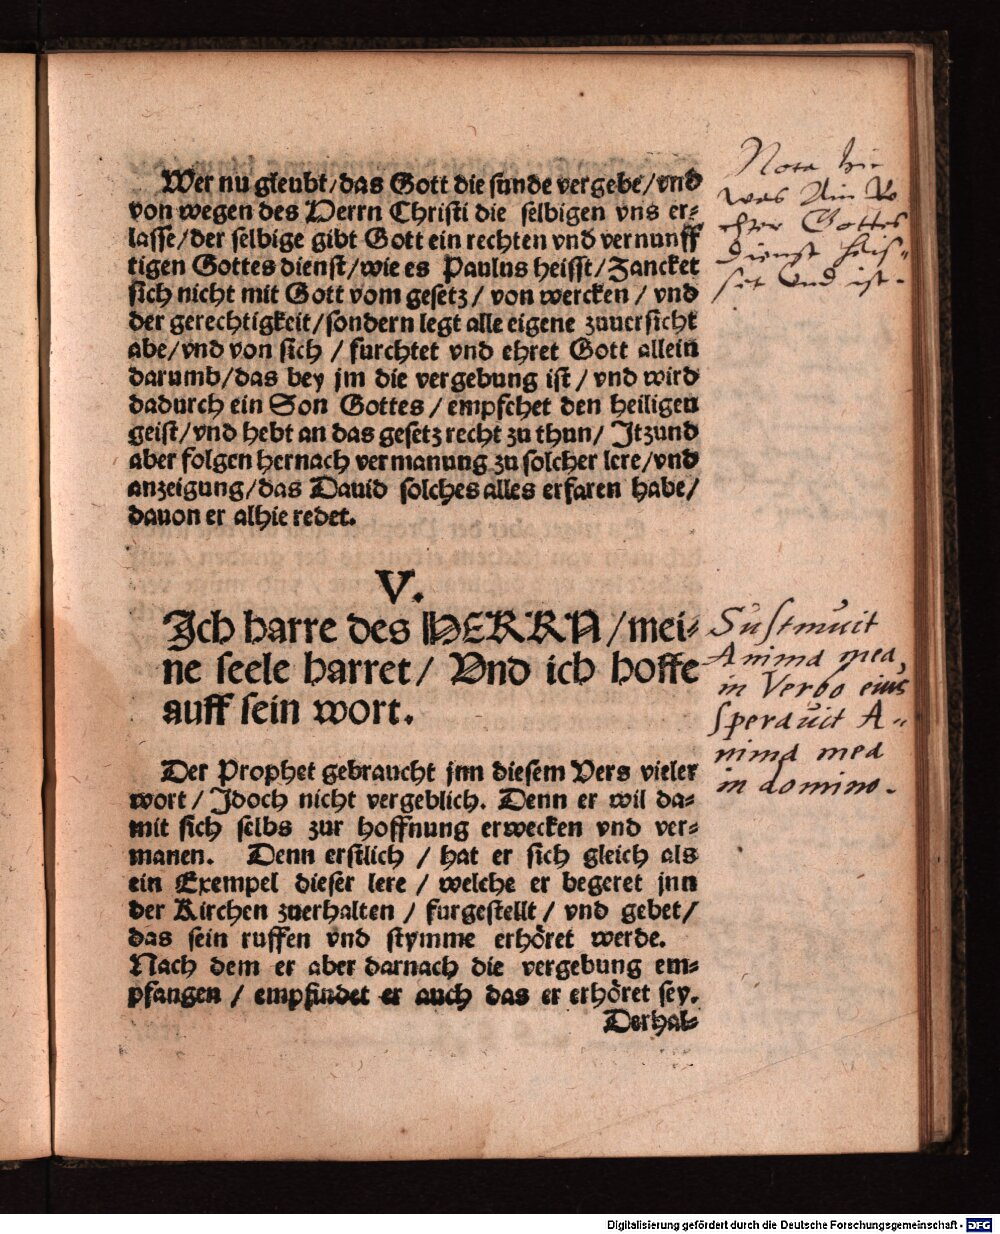 Wer nu gleubt/das Gott die sunde vergebe/vnd
von wegen des Herrn Christi die selbigen vns er⸗
lasse/der selbige gibt Gott ein rechten vnd vernunff
tigen Gottes dienst/wie es Paulus heisst/Zancket
sich nicht mit Gott vom gesetz/ von wercken / vnd
der gerechtigkeit/sondern legt alle eigene zuuersicht
abe/vnd von sich / furchtet vnd ehret Gott allein
darumb/das bey jm die vergebung ist / vnd wird
dadurch ein Son Gottes / empfehet den heiligen
geist/vnd hebt an das gesetz recht zu thun/ Itzund
aber folgen hernach vermanung zu solcher lere/vnd
anzeigung/das Dauid solches alles erfaren habe/
dauon er alhie redet.
Nota hie
was
Gottes
dienst heis⸗
set vnd ist.
V.
Ich harre des HERRN /mei⸗
ne seele harret/ Vnd ich hoffe
auff sein wort.
Sustinuit
Anima mea,
in Verbo eius
speravit A⸗
nima mea
in domino.
Der Prophet gebraucht jnn diesem Vers vieler
wort / Jdoch nicht vergeblich. Denn er wil da⸗
mit sich selbs zur hoffnung erwecken vnd ver⸗
manen. Denn erstlich / hat er sich gleich als
ein Exempel dieser lere / welche er begeret jnn
der Kirchen zuerhalten / furgestellt / vnd gebet/
das sein ruffen vnd stymme erhöret werde.
Nach dem er aber darnach die vergebung em⸗
pfangen / empfindet er auch das er erhöret sey.
Derhal⸗
Digitalisierung gefördert durch die Deutsche Forschungsgemeinschaft - DFG